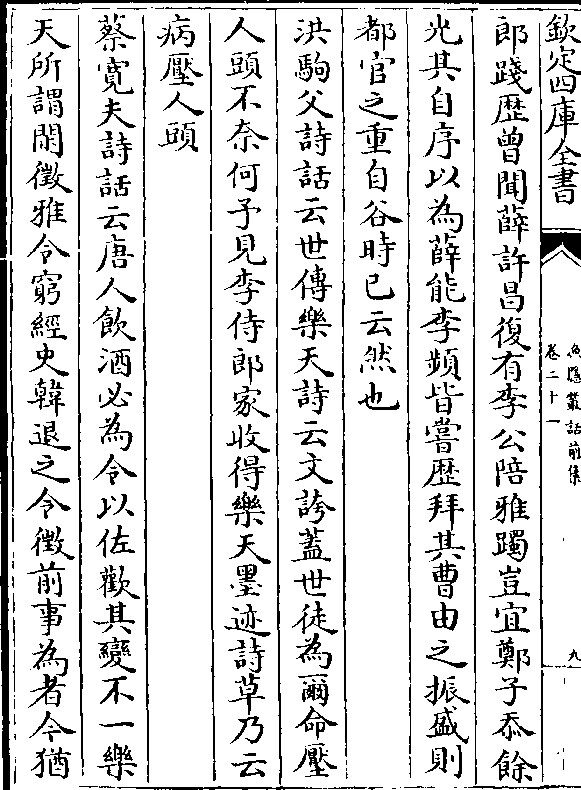 欽定四庫全書
漁隱叢話前集
卷二十一
九
郎踐歷曾聞薛許昌復有李公陪雅躅豈宜鄭子忝餘
光其自序以為薛能李頻皆嘗歴拜其曹由之振盛則
都官之重自谷時已云然也
洪駒父詩話云世傳樂天詩云文誇蓋世徒為爾命壓
人頭不奈何予見李侍郎家收得樂天墨迹詩草乃云
病壓人頭
蔡寛夫詩話云唐人飲酒必為令以佐歡其變不一樂
天所謂閑徵雅令窮經史韓退之令徵前事為者今猶